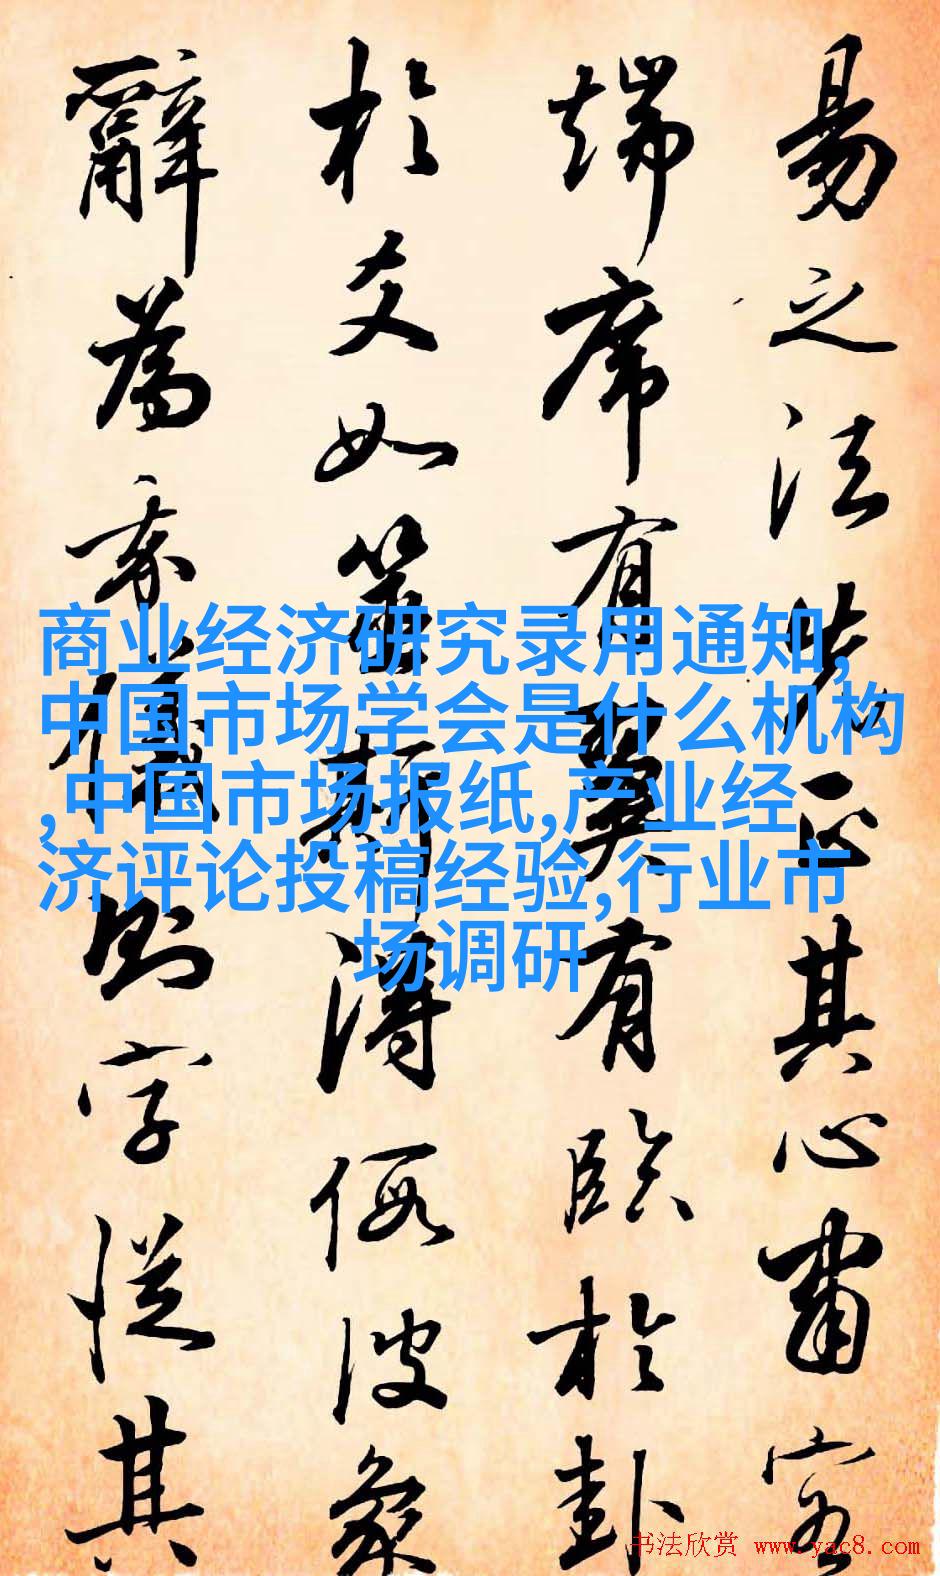 易之法先正其心肅容
端席有翼有臨於卦
於爻如筮斯得假彼象
辭為我儀則字從其
商业经济研究录用通知,
中国市场学会是什么机构
,中国市场报纸,产业经
济评论投稿经验,行业市
场调研
书法欣赏 www.yac8.com